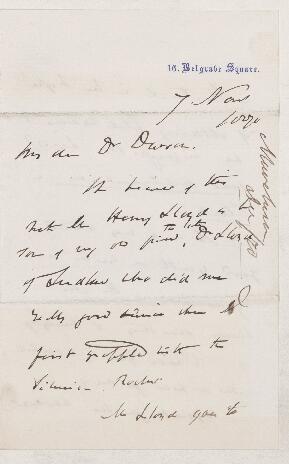 16, Belgrave Square.
7 Nov
1870
My dear Dr Dawson.
The bearer of this
note Mr Henry Lloyd is
son of my old friend, the late Dr Lloyd
of Ludlow who did me
really good service when I
first grappled with the
Silurian Rocks
Mr Lloyd goes to
Murchison